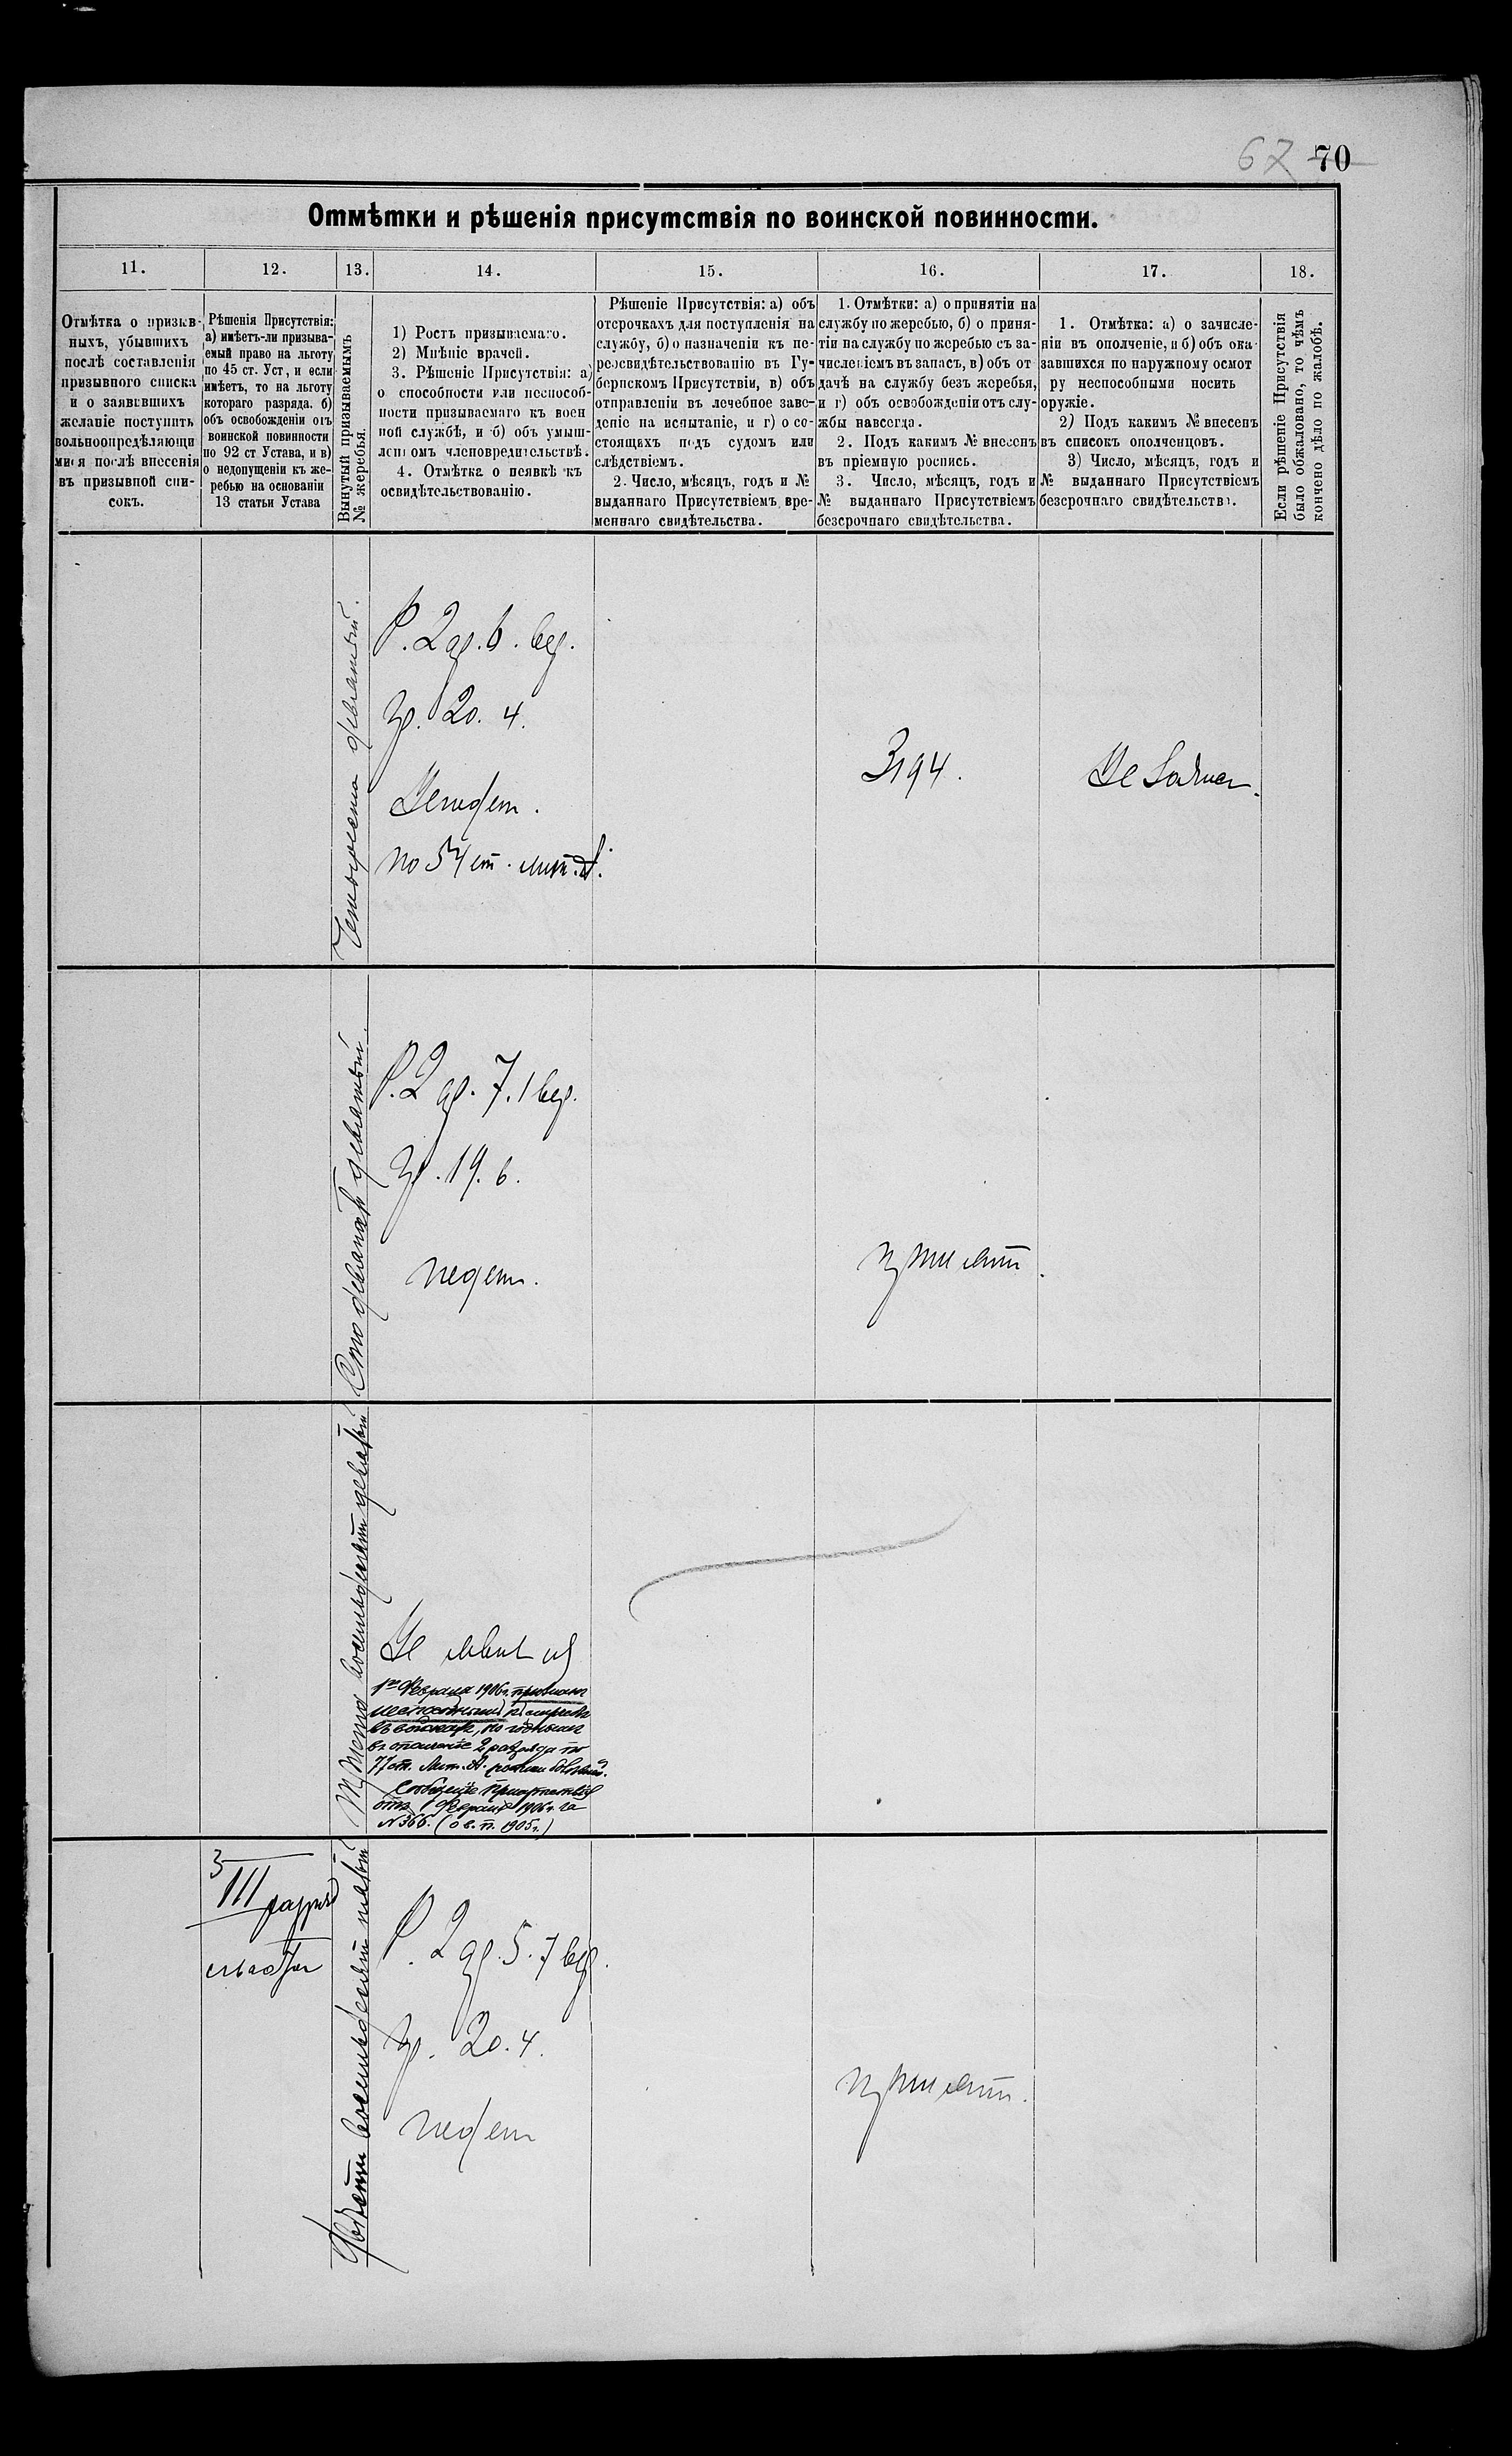 67 70
Отмѣтки и рѣшенія присутствія по воинской повинности.
11.
12.
13.
14.
15.
16.
17.
18.
Отмѣтка о призыв-
ныхъ, убывшихъ
послѣ составленія
призывного списка
и о заявившихъ
желаніе поступить
вольноопредѣляющи
мися послѣ внесенія
въ призывной спи-
сокъ.
Рѣшенія Присутствія:
а) имѣетъ-ли призыва-
емый право на льготу
по 45 ст. Уст, и если
имѣетъ, то на льготу
котораго разряда. б)
объ освобожденіи отъ
воинской повинности
по 92 ст Устава, и в)
о недопущеніи къ же-
ребью на основаніи
13 статьи Устава
Вынутый призываемымъ
№ жеребья.
1) Ростъ призываемаго.
2) Мнѣніе врачей.
3. Рѣшеніе Присутствія: а)
о способности или неспособ-
ности призываемаго къ воен
ной службѣ, и б) объ умыш-
ленномъ членовредительствѣ.
4. Отмѣтка о неявкѣ къ
освидѣтельствованію.
Рѣшеніе Присутствія: а) объ
отсрочкахъ для поступленія на
службу, б) о назначеніи къ пе-
реосвидѣтельствованію въ Гу-
бернскомъ Присутствіи, в) объ
отправленіи въ лечебное заве-
деніе на испытаніе, и г) о со-
стоящихъ подъ судомъ или
слѣдствіемъ.
2. Число, мѣсяцъ, годъ и №
выданнаго Присутствіемъ вре-
меннаго свидѣтельства.
1. Отмѣтки: а) о принятіи на
службу по жеребью, б) о приня-
тіи на службу по жеребью съ за-
численіемъ въ запасъ, в) объ от
дачѣ на службу безъ жеребья,
и г) объ освобожденіи отъ слу-
жбы навсегда.
2. Подъ какимъ № внесенъ
въ пріемную роспись.
3. Число, мѣсяцъ, годъ и
№ выданнаго Присутствіемъ
безсрочнаго свидѣтельства.
1. Отмѣтка: а) о зачисле-
ніи въ ополченіе, и б) объ ока-
завшихся по наружному осмот
ру неспособными носить
оружіе.
2) Подъ какимъ № внесенъ
въ списокъ ополченцовъ.
3) Число, мѣсяцъ, годъ и
№ выданнаго Присутствіемъ
безсрочнаго свидѣтельства.
Если рѣшеніе Присутствія
было обжаловано, то чѣмъ
кончено дѣло по жалобѣ.
Четыреста девятый.
Р. 2 ар. 6. вер.
гр. 20. 4.
Негоден.
по 54 ст. лит. А.
3194.
Сто девяность девятый.
Р. 2 ар. 7. 1 вер.
гр. 19. 6.
годен.
принят.
Триста восемьдесят девятый
Не явился
1го Февраля 1906 г. признан
неспособным к службе
в войсках, но годным
в ополчение 2 разряда по
77 ст. Лит. А.
Сообщение Присутствия
от Февраля 1906 г. за
№ 366. (о в. п. 1905 г.)
Двести восемьдесят пятый
III разряд
льгота
Р. 2 ар. 5. 7 вер.
гр. 20. 4.
годен
принят.